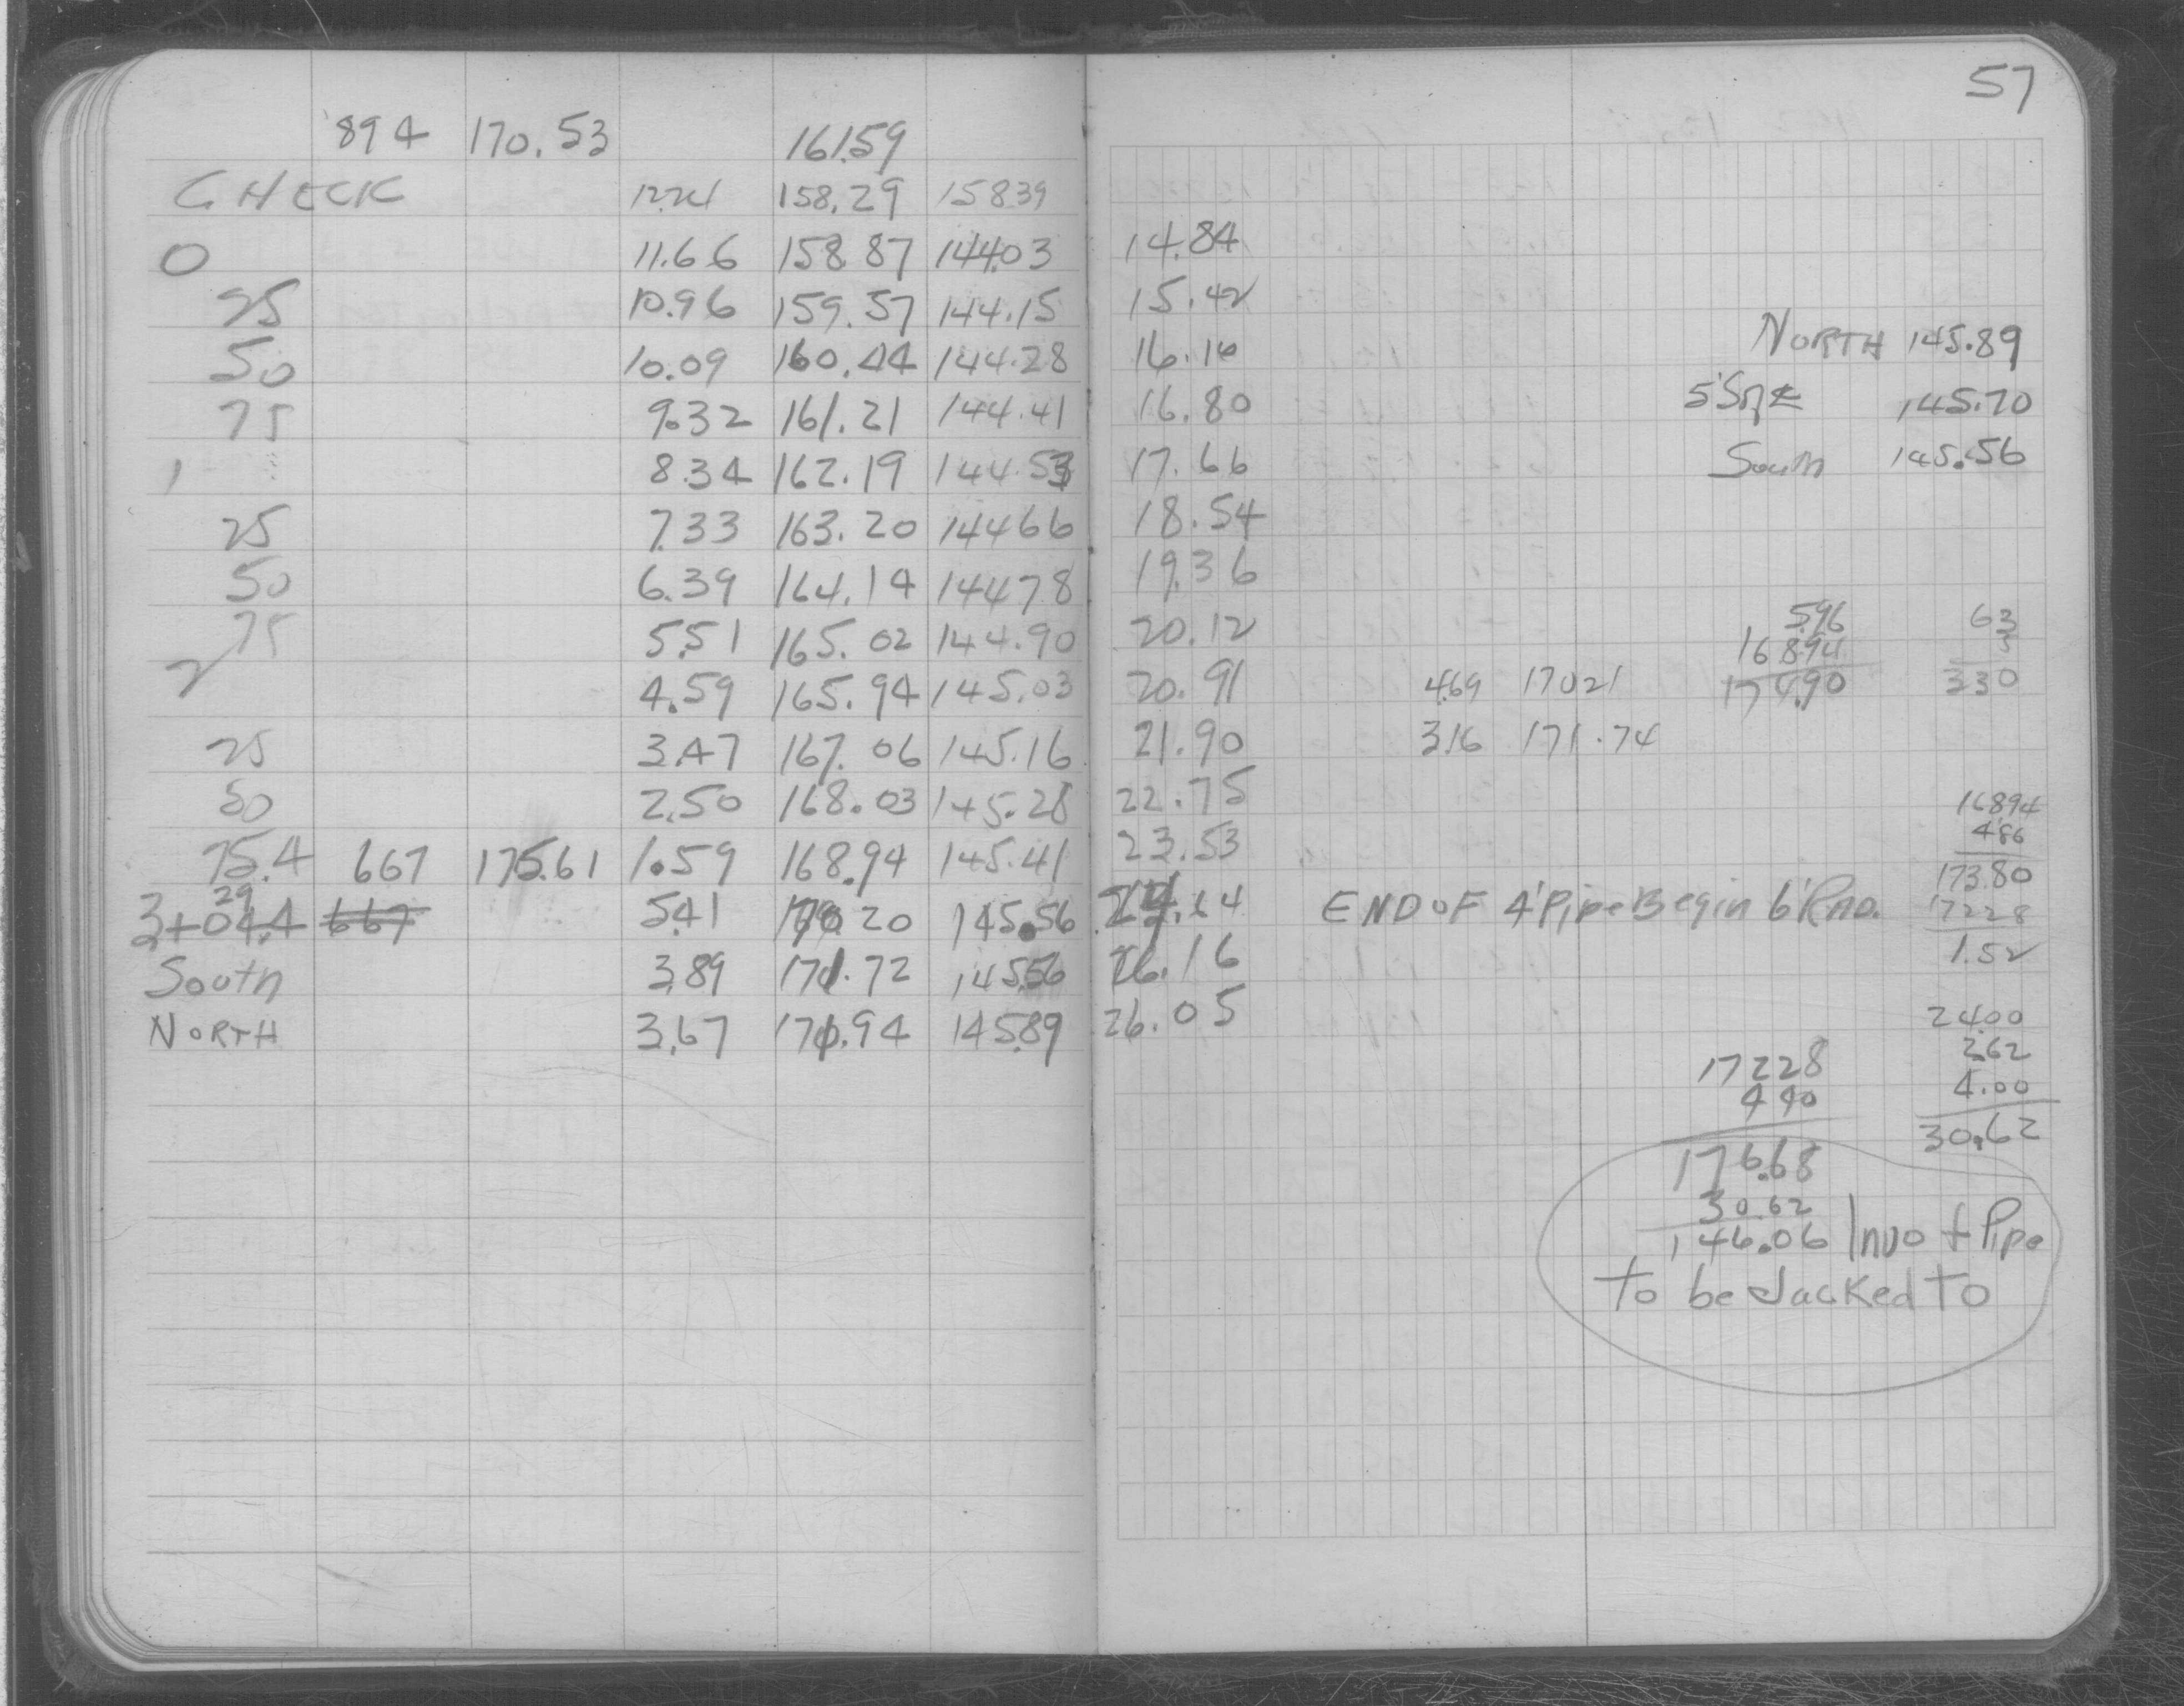 57
894 170.53 161.59
CHECK 12.24 158.29 158.39
0 11.66 158.87 144.03 14.84
25 10.96 159.57 144.15 15.42
50 10.09 160.44 144.28 16.16
75 9.32 161.21 144.41 16.80
1 8.34 162.19 144.53 17.66
25 7.33 163.20 144.66 18.54
50 6.39 164.14 144.78 19.36
75 5.51 165.02 144.90 20.12
2 4.59 165.94 145.03 20.91
25 3.47 167.06 145.16 21.90
50 2.50 168.03 145.28 22.75
75.4 667 175.61 1.59 168.94 145.41 23.53
29
3+04.4 667 5.41 170.20 145.56 24.64 END OF 4' Pipe Begin 6' Rnd.
South 3.89 171.72 145.56 26.16
NORTH 3.67 171.94 145.89 26.05
NORTH 145.89
5'Sq ℄ 145.70
South 145.56
5.96
168.94
174.90
63
5
330
4.69 170.21
3.16 171.74
168.94
4.86
173.80
172.28
1.52
24.00
2.62
4.00
30.62
172.28
4 40
176.68
30.62
146.06 Inv of Pipe
To be Jacked To